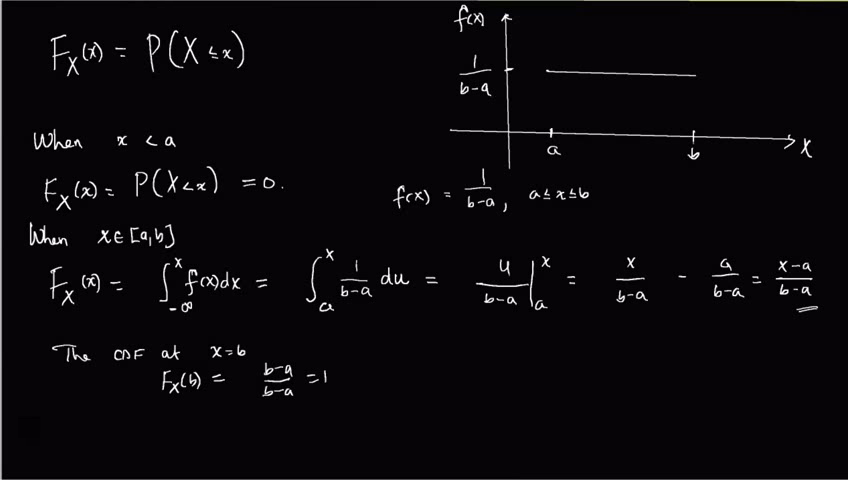 F_X(x) = P(X ≤ x)
f(x)
1/(b-a)
a
b
X
When x < a
F_X(x) = P(X < x) = 0.
f(x) = 1/(b-a), a ≤ x ≤ b
When x ∈ [a,b]
F_X(x) = ∫_{-∞}^{x} f(x)dx = ∫_{a}^{x} 1/(b-a) du = u/(b-a) |_{a}^{x} = x/(b-a) - a/(b-a) = (x-a)/(b-a)
The CDF at x=b
F_X(b) = (b-a)/(b-a) = 1